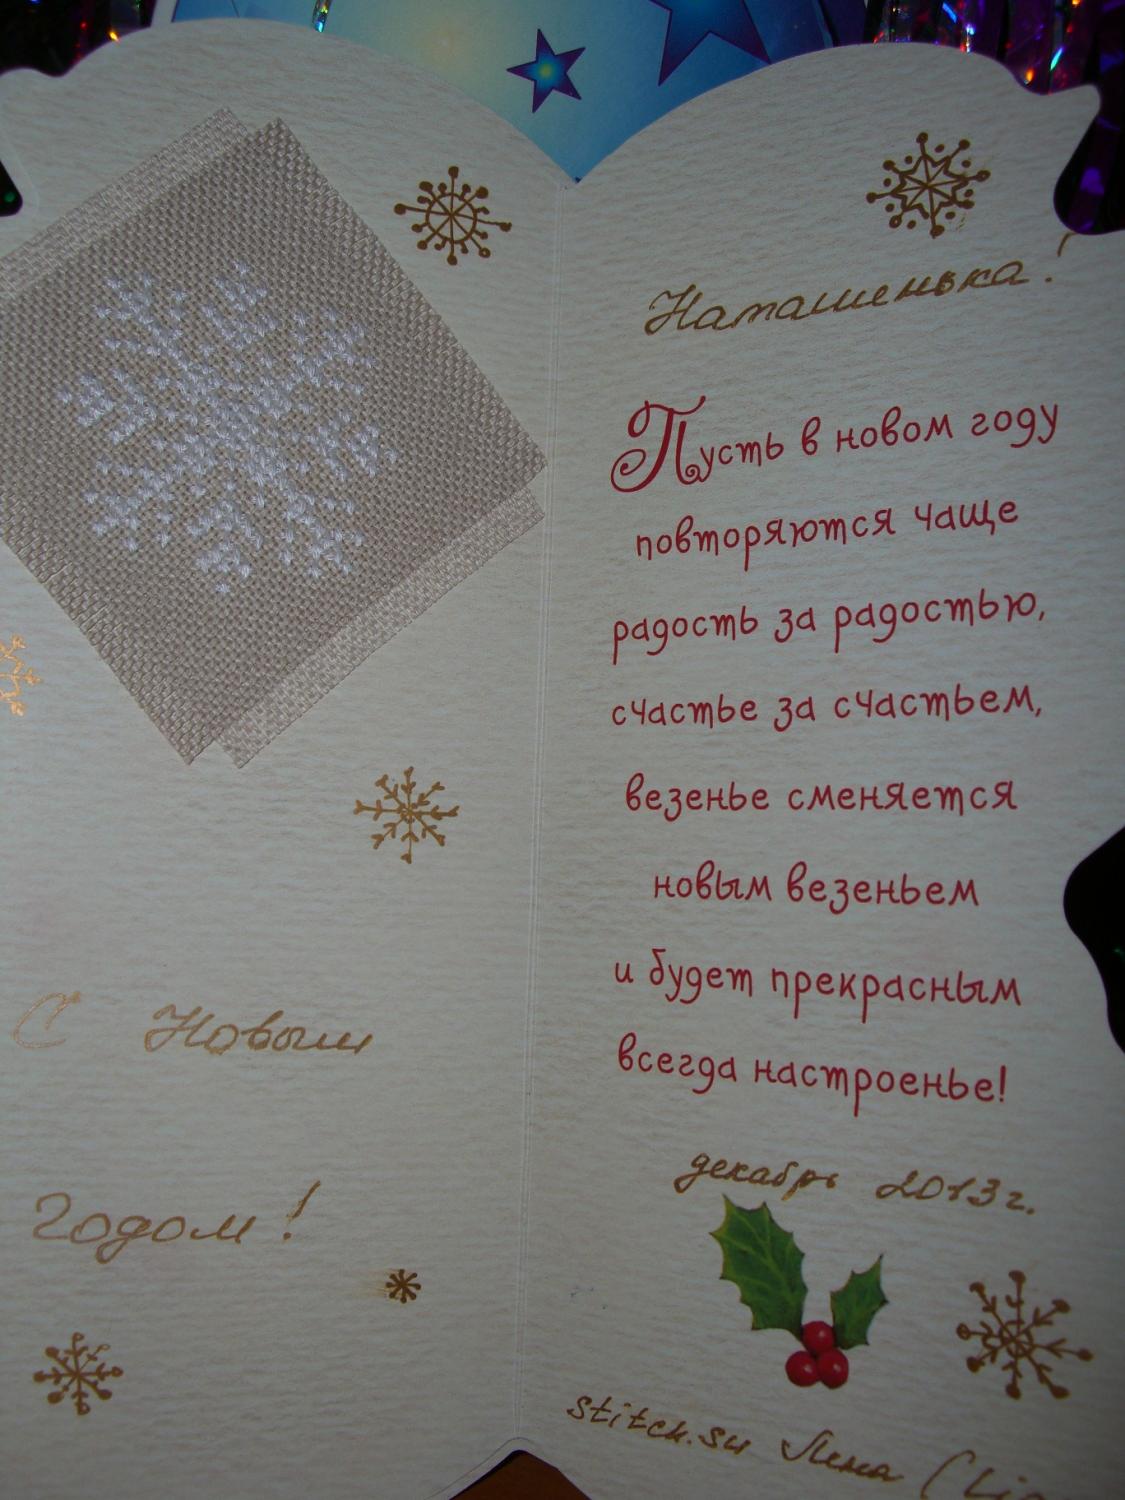 С Новым
Годом!
Наташенька!
Пусть в новом году
повторяются чаще
радость за радостью,
счастье за счастьем,
везенье сменяется
новым везеньем
и будет прекрасным
всегда настроенье!
декабрь 2013г.
stitch.su Лина